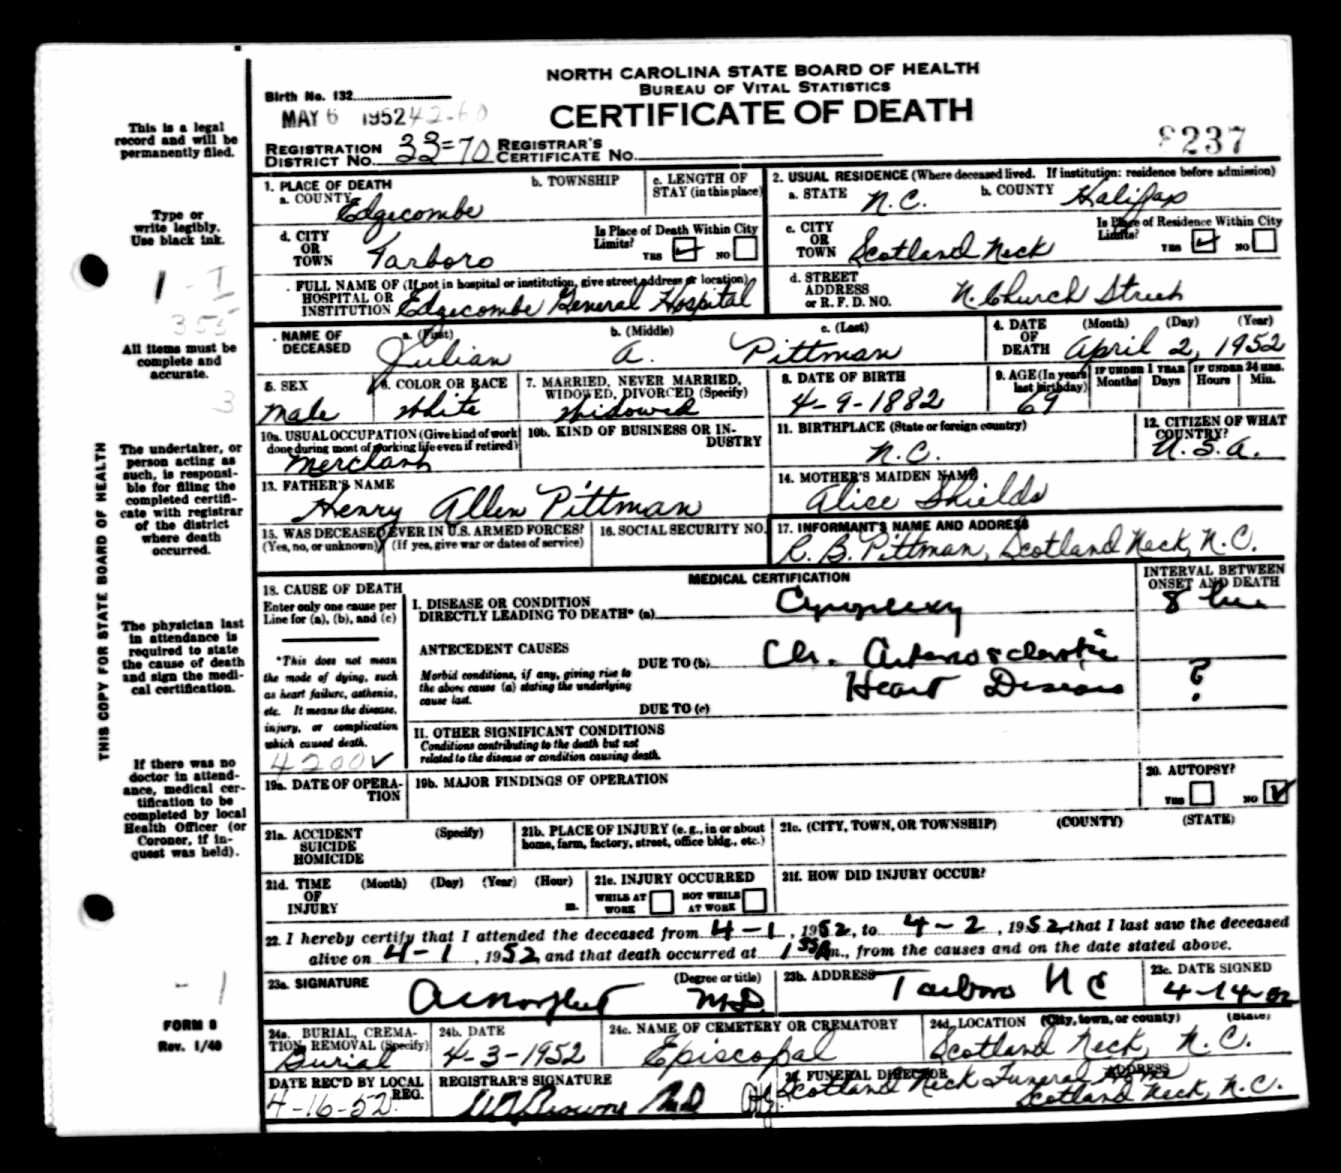 NORTH CAROLINA STATE BOARD OF HEALTH
BUREAU OF VITAL STATISTICS
CERTIFICATE OF DEATH
Birth No. 132
MAY 6 1952
8237
REGISTRATION DISTRICT No. 33-70 REGISTRAR'S CERTIFICATE No.
This is a legal
record and will be
permanently filed.
Type or
write legibly.
Use black ink.
1 - I
355
All items must be
complete and
accurate.
3
The undertaker, or
person acting as
such, is responsi-
ble for filing the
completed certifi-
cate with registrar
of the district
where death
occurred.
THIS COPY FOR STATE BOARD OF HEALTH
The physician last
in attendance is
required to state
the cause of death
and sign the medi-
cal certification.
If there was no
doctor in attend-
ance, medical cer-
tification to be
completed by local
Health Officer (or
Coroner, if in-
quest was held).
- 1
FORM 8
Rev. 1/49
1. PLACE OF DEATH
a. COUNTY Edgecombe
b. TOWNSHIP
c. LENGTH OF
STAY (in this place)
2. USUAL RESIDENCE (Where deceased lived. If institution: residence before admission)
a. STATE N.C. b. COUNTY Halifax
d. CITY
OR
TOWN Tarboro
Is Place of Death Within City
Limits? YES ✓ NO
c. CITY
OR
TOWN Scotland Neck
Is Place of Residence Within City
Limits? YES ✓ NO
FULL NAME OF (If not in hospital or institution, give street address or location)
HOSPITAL OR
INSTITUTION Edgecombe General Hospital
d. STREET
ADDRESS
or R. F. D. NO. N. Church Street
NAME OF
DECEASED
a. (First) b. (Middle) c. (Last)
Julian A. Pittman
4. DATE
OF
DEATH
(Month) (Day) (Year)
April 2, 1952
5. SEX
Male
6. COLOR OR RACE
White
7. MARRIED, NEVER MARRIED,
WIDOWED, DIVORCED (Specify)
Widowed
8. DATE OF BIRTH
4-9-1882
9. AGE (In years
last birthday)
69
IF UNDER 1 YEAR
Months Days
IF UNDER 24 HRS.
Hours Min.
10a. USUAL OCCUPATION (Give kind of work
done during most of working life even if retired)
Merchant
10b. KIND OF BUSINESS OR IN-
DUSTRY
11. BIRTHPLACE (State or foreign country)
N.C.
12. CITIZEN OF WHAT
COUNTRY?
U.S.A.
13. FATHER'S NAME
Henry Allen Pittman
14. MOTHER'S MAIDEN NAME
Alice Shields
15. WAS DECEASED EVER IN U.S. ARMED FORCES?
(Yes, no, or unknown) (If yes, give war or dates of service)
16. SOCIAL SECURITY NO.
17. INFORMANT'S NAME AND ADDRESS
R. B. Pittman, Scotland Neck, N.C.
18. CAUSE OF DEATH
Enter only one cause per
Line for (a), (b), and (c)
*This does not mean
the mode of dying, such
as heart failure, asthenia,
etc. It means the disease,
injury, or complication
which caused death.
4200 ✓
MEDICAL CERTIFICATION
INTERVAL BETWEEN
ONSET AND DEATH
I. DISEASE OR CONDITION
DIRECTLY LEADING TO DEATH* (a) Apoplexy
8
ANTECEDENT CAUSES
DUE TO (b) Chr. Arteriosclerotic
Morbid conditions, if any, giving rise to
the above cause (a) stating the underlying
cause last.
Heart Disease ?
DUE TO (c)
II. OTHER SIGNIFICANT CONDITIONS
Conditions contributing to the death but not
related to the disease or condition causing death.
19a. DATE OF OPERA-
TION
19b. MAJOR FINDINGS OF OPERATION
20. AUTOPSY?
YES NO ✓
21a. ACCIDENT
SUICIDE
HOMICIDE
(Specify)
21b. PLACE OF INJURY (e. g., in or about
home, farm, factory, street, office bldg., etc.)
21c. (CITY, TOWN, OR TOWNSHIP) (COUNTY) (STATE)
21d. TIME
OF
INJURY
(Month) (Day) (Year) (Hour)
m.
21e. INJURY OCCURRED
WHILE AT
WORK
NOT WHILE
AT WORK
21f. HOW DID INJURY OCCUR?
22. I hereby certify that I attended the deceased from 4-1, 1952, to 4-2, 1952, that I last saw the deceased
alive on 4-1, 1952, and that death occurred at 1 55 A m., from the causes and on the date stated above.
23a. SIGNATURE (Degree or title)
M.D.
23b. ADDRESS
Tarboro N C
23c. DATE SIGNED
4-14-52
24a. BURIAL, CREMA-
TION, REMOVAL (Specify)
Burial
24b. DATE
4-3-1952
24c. NAME OF CEMETERY OR CREMATORY
Episcopal
24d. LOCATION (City, town, or county) (State)
Scotland Neck, N.C.
DATE REC'D BY LOCAL
REG.
4-16-52
REGISTRAR'S SIGNATURE
25. FUNERAL DIRECTOR ADDRESS
Scotland Neck Funeral Home
Scotland Neck, N.C.